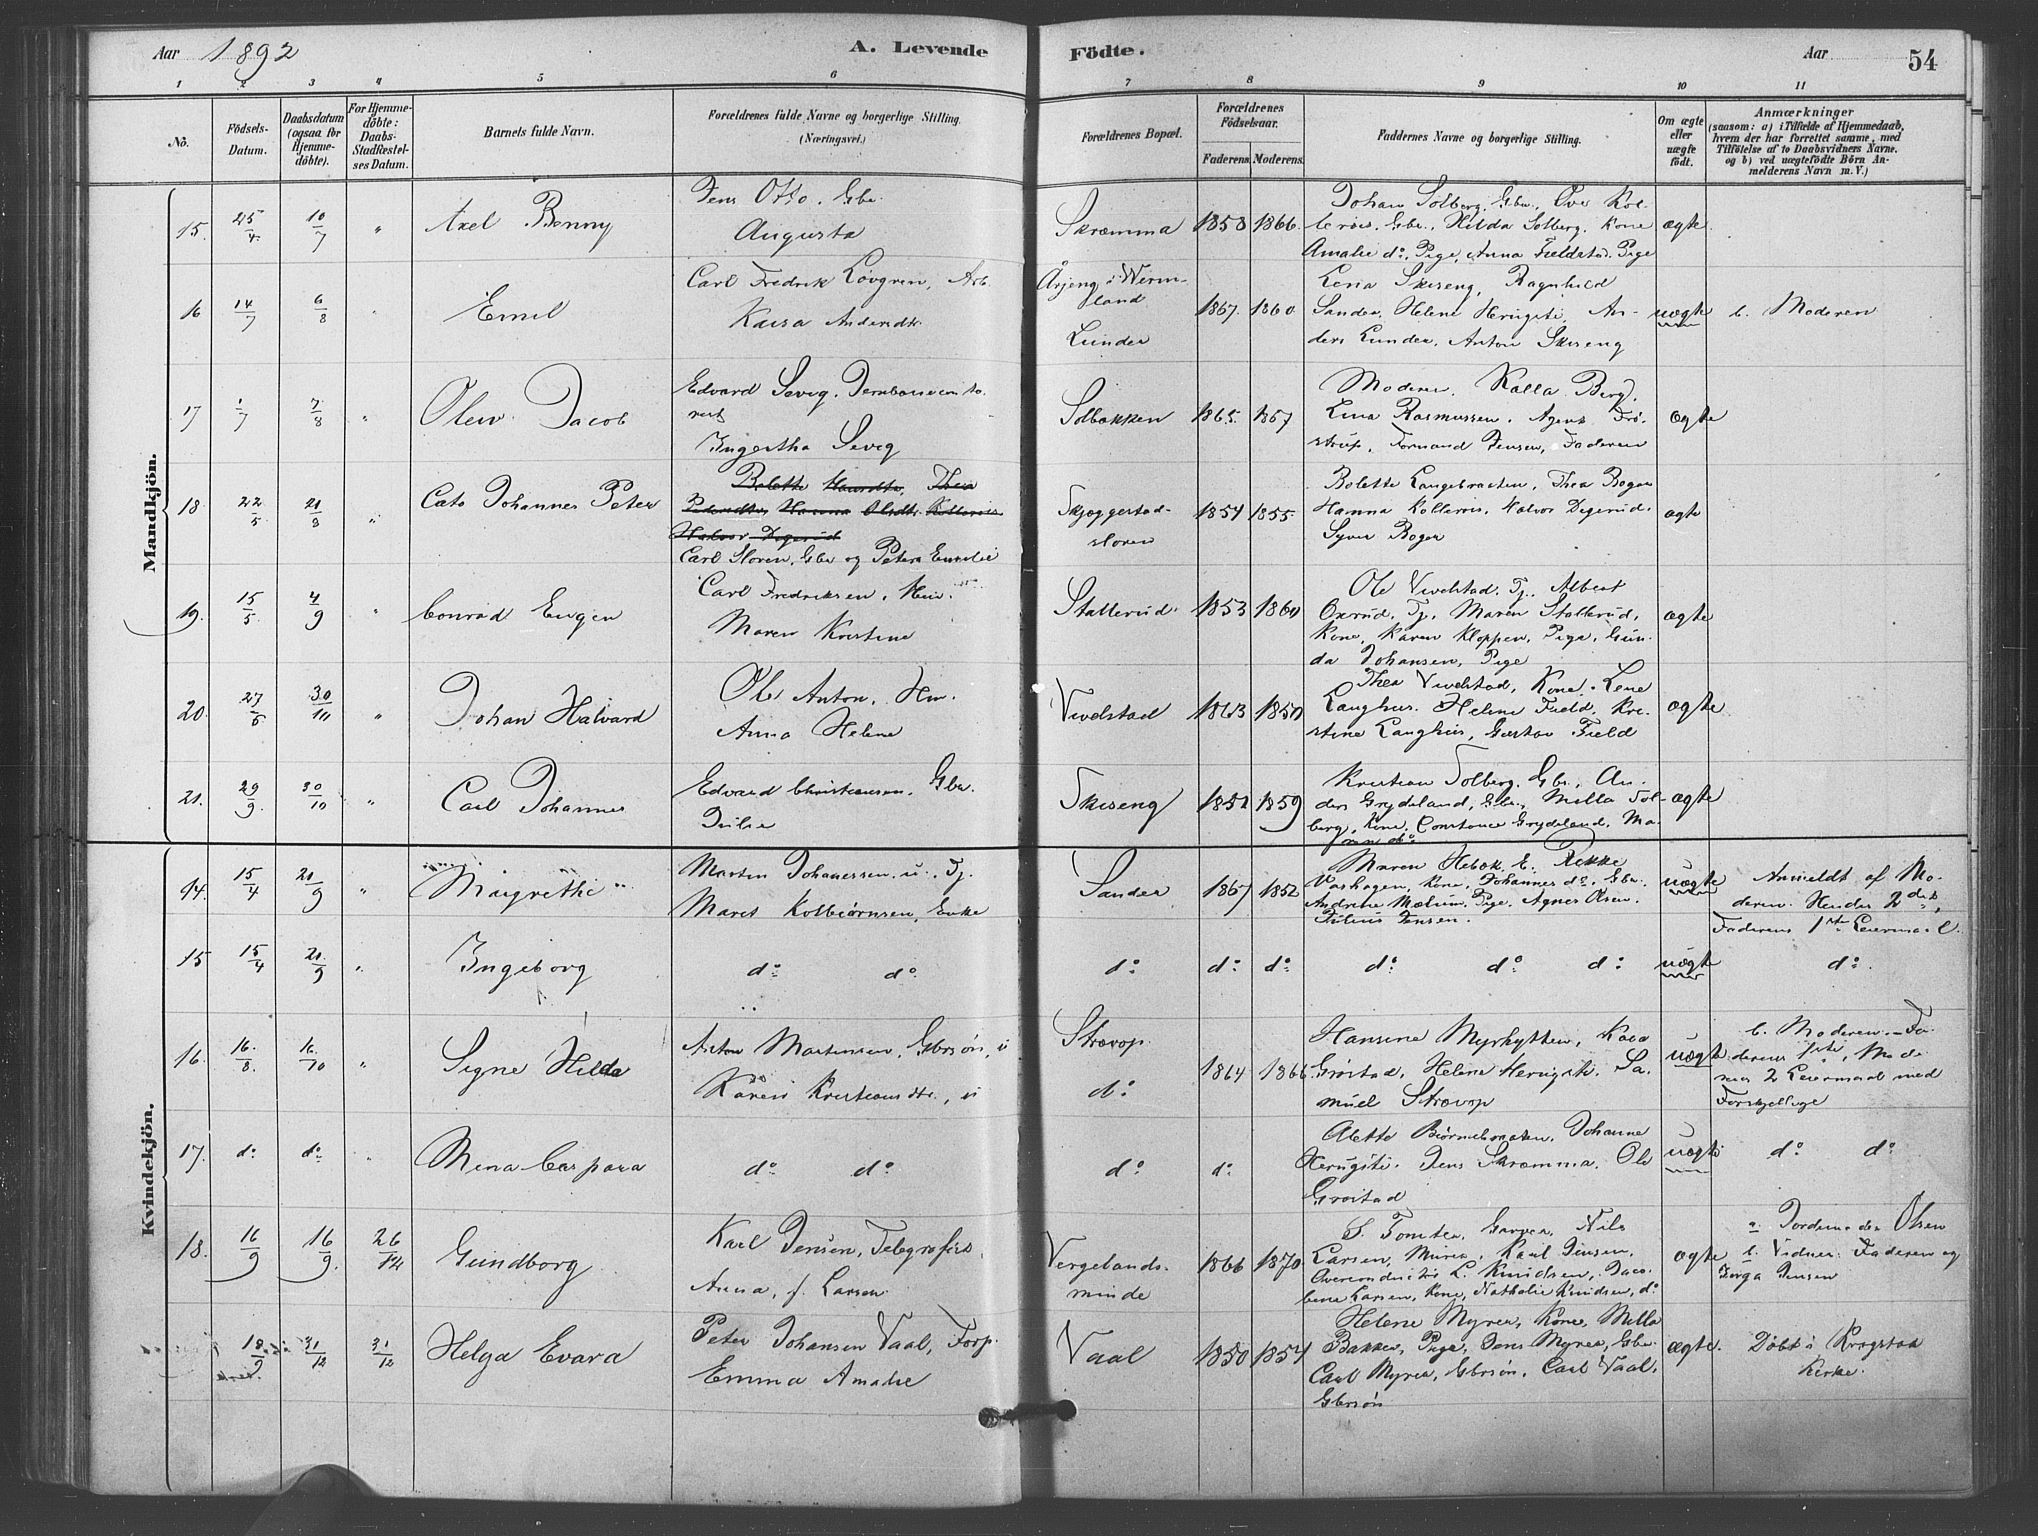 Aar 1892 A. Levende Födte. Aar 54
1 2 3 4 5 6 7 8 9 10 11
No.
Födsels-
Datum.
Daabsdatum
(ogsaa for
Hjemme-
döbte).
For Hjemme-
döbte:
Daabs-
Stadfæstel-
ses Datum.
Barnets fulde Navn.
Forældrenes fulde Navne og borgerlige Stilling.
(Næringsvei.)
Forældrenes Bopæl.
Forældrenes
Födselsaar.
Faderens. Moderens.
Faddernes Navne og borgerlige Stilling.
Om ægte
eller
uægte
födt.
Anmærkninger
(saasom: a) i Tilfælde af Hjemmedaab,
hvem der har forrettet samme, med
Tilföielse af to Daabsvidners Navne,
og b) ved uægtefödte Börn An-
melderens Navn m. V.)
Mandkjön.
15. 25/4. 10/7 " Axel Benny
Jens Otto. Gbr.
Augusta
Skræmma 1858 1866.
Johan Solberg, Gbr., Over Kol-
Gbr., Hilda Solberg, Kone
Amalie do, Pige, Anna Fieldstad, Pige
ægte
16 14/7 6/8 " Emil
Carl Fredrik Løvgren, Arb.
Kaisa Andersdtr.
Årjeng i Werm-
land
Lunder
1867. 1860
Lena Skiseng, Ragnhild
Sander, Helene Herugsti, An-
ders Lunder, Anton Skiseng
uægte
b. Moderen
17 1/7 7/8 " Olew Jacob
Edvard Seveg, Jernbane
Ingertha Seveg
Solbakken 1865. 1867
Moderen, Kalla Berg,
Lina Rasmussen, Agens Frø-
strup, Fernand Jensen, Faderen
ægte
18 22/5. 21/8 " Cato Johannes Peter
Carl Storen, Gbr og Petra Emilie
Skjeggestad-
storen
1854 1855.
Bolette Langebraaten, Thea Boger
Hanna Kolleros, Halvor Degerud.
Syver Boger
ægte
19. 15/5. 4/9 " Conrad Eugen
Carl Fredriksen,
Maren Kristine
Stallerud. 1853 1860
Ole Vevelstad, Tj., Albert
Oxrud, Tj., Maren Stallerud,
Kone, Karen Kloppen, Pige, Gun-
da Johansen, Pige
ægte
20. 27/8 30/10 " Johan Halvard
Ole Anton, Hm.
Anna Helene
Vevelstad 1863 1859
Thea Vevelstad, Kone, Lene
Langhus. Helene Field, Kri-
stine Langhus, Gustav Field
ægte
21. 29/9. 30/10 " Carl Johannes
Edvard Christiansen. Gbr.
Julie
Skiseng 1852 1859
Kristian Solberg, Gbr., An-
ders Grydeland, Gbr., Milla Sol-
berg, Kone, Constance Grydeland, Ma-
do.
ægte
Kvindekjön.
14. 15/4 21/9 " Margrethe
Martin Johanessen, u., Tj.
Maret Kolbiørnsen, Enke
Sander 1867 1852
Maren Hebæk, E., Rikke
Vashagen, Kone, Johannes do, Gbr.
Andrine Mælum, Pige, Agnes Olsen.
Julius Jensen.
uægte
Anmeldt af Mo-
deren. Hendes 2det,
Faderens 1ste Leiermaal.
15 15/4 21/9 " Ingeborg
do. do.
do. do. do. do. do. do. uægte do.
16. 16./8. 16./10 " Signe Hilda
Anton Martinsen, Gbrsøn, u
Karen Kristiansdtr., u
Strævop.
do.
1864 1866.
Hansine Myrhytten, Kaia
Grøstad, Helene Herugsti, Sa-
muel Strævop
uægte
b. Moderen. – Fa-
derens 1ste, Mode-
rens 2 Leiermaal med
Forskjellige
17. do. do. " Mena Caspara
do. do.
do. do.
Alette Biørnebraaten, Johanne
Herugsti. Jens Skræmma, Ole
Grøstad
uægte
do. do.
18. 16/9 16/9. 26/12 Gundborg
Karl Jensen, Telegrafist.
Anna, f. Larsen
Vergelands-
minde
1866 1870.
S. Tomter, Nils
Larsen, Karl Jensen,
Overconductør L. Knudsen, Jaco-
bine Larsen, Kone, Nathalie Knudsen, do.
ægte
a. Jordemoder Olsen
b. Vidner: Faderen og
Jensen
18/9 31/12 31/12 Helga Evara
Peter Johansen Vaal, Forp.
Emma Amalie
Vaal 1850 1854
Helene Myrer, Kone, Milla
Bakker, Pige, Jens Myrer, Gbr.
Carl Myrer, Gbrsøn, Carl Vaal,
Gbrsøn
ægte.
Døbt i Kragstad
Kirke.